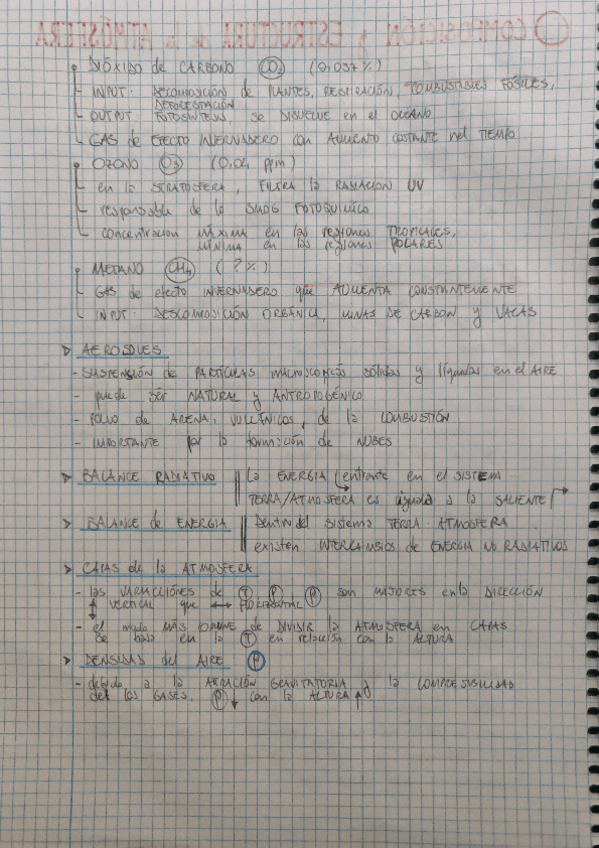 ① COMPOSICIÓN y ESTRUCTURA de la ATMÓSFERA
• DIÓXIDO de CARBONO (CO₂) (0,037 %)
- INPUT: DECOMPOSICIÓN de PLANTES, RESPIRACIÓN, COMBUSTIBLES FÓSILES,
DEFORESTACIÓN
- OUTPUT FOTOSÍNTESIS, se DISUELVE en el OCEANO
- GAS de EFECTO INVERNADERO con AUMENTO COSTANTE nel TIEMPO
• OZONO (O₃) (0,04 ppm)
- en la STRATOSFERA, FILTRA la RADIACION UV
- responsable de lo SMOG FOTOQUÍMICO
- concentracion MÁXIMA en las regiones TROPICALES,
MÍNIMA en las regiones POLARES
• METANO (CH₄) (? %)
- GAS de efecto INVERNADERO que AUMENTA CONSTANTEMENTE
- INPUT: DESCOMPOSICIÓN ORGÁNICA, MINAS DE CARBON y VACAS
▷ AEROSOLES
- SUSPENSIÓN de PARTÍCULAS MACROSCOPICAS sólidas y líquidas en el AIRE
- puede ser NATURAL y ANTROPOGÉNICO
- POLVO de ARENA, VULCÁNICOS, de la COMBUSTIÓN
- IMPORTANTE por la formación de NUBES
▷ BALANCE RADIATIVO || la ENERGIA entrante en el SISTEMA
TERRA/ATMOSFERA es iguala a la SALIENTE
▷ BALANCE de ENERGIA || Dentro del sistema TERRA-ATMOSFERA
existen INTERCAMBIOS de ENERGIA NO RADIATIVOS
▷ CAPAS de la ATMOSFERA
- las VARIACIÓNES de (T), (P), (ρ) son MAJORES en la DIRECCIÓN
↕ VERTICAL que ↔ HORIZONTAL
- el modo MÁS COMUNE de DIVIDIR la ATMOSFERA en CAPAS
se basa en la (T) en relación con la ALTURA
▷ DENSIDAD del AIRE (ρ)
- debido a la ATRACIÓN GRAVITATORIA y la COMPRESIBILIDAD
del los GASES, (ρ)↓ con la ALTURA ↑